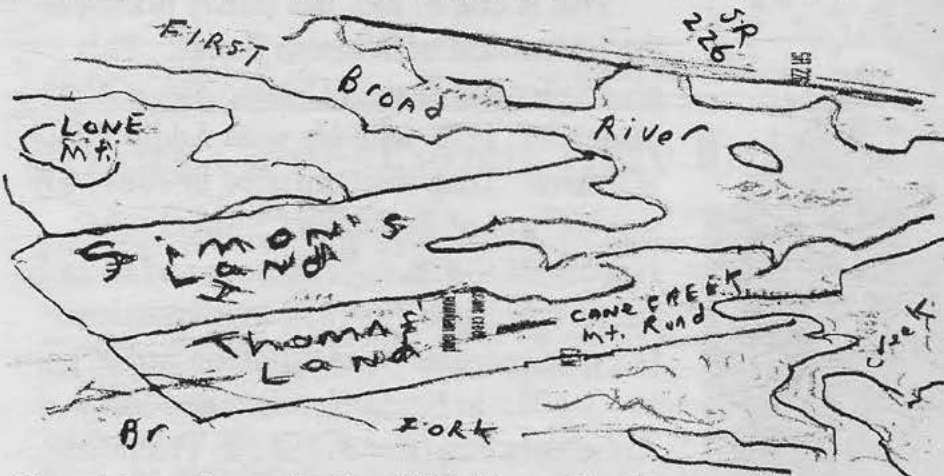 FIRST
Broad
River
S.R
226
SR 226
LONE
Mt.
SIMON'S
LAND
THOMAS
LAND
CANE CREEK
Mt. Road
Creek
Br.
FORK